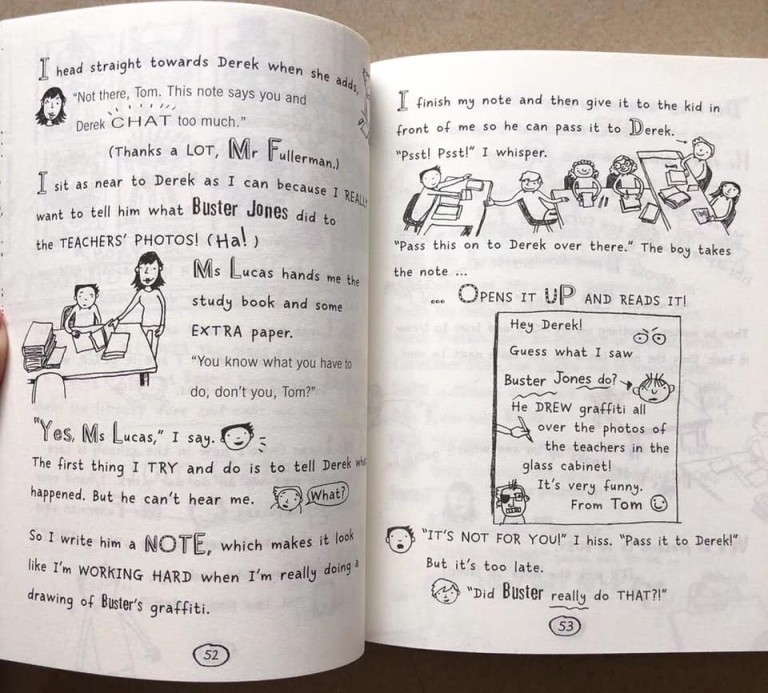 I head straight towards Derek when she adds,
“Not there, Tom. This note says you and
Derek CHAT too much.”
(Thanks a LOT, Mr Fullerman.)
I sit as near to Derek as I can because I REALLY
want to tell him what Buster Jones did to
the TEACHERS' PHOTOS! (Ha!)
Ms Lucas hands me the
study book and some
EXTRA paper.
“You know what you have to
do, don't you, Tom?”
“Yes, Ms Lucas,” I say.
The first thing I TRY and do is to tell Derek
happened. But he can't hear me.
What?
So I write him a NOTE, which makes it look
like I'm WORKING HARD when I'm really doing a
drawing of Buster's graffiti.
52
I finish my note and then give it to the kid in
front of me so he can pass it to Derek.
“Psst! Psst!” I whisper.
“Pass this on to Derek over there.” The boy takes
the note ...
... OPENS IT UP AND READS IT!
Hey Derek!
Guess what I saw
Buster Jones do?
He DREW graffiti all
over the photos of
the teachers in the
glass cabinet!
It's very funny.
From Tom
“IT'S NOT FOR YOU!” I hiss. “Pass it to Derek!”
But it's too late.
“Did Buster really do THAT?!”
53